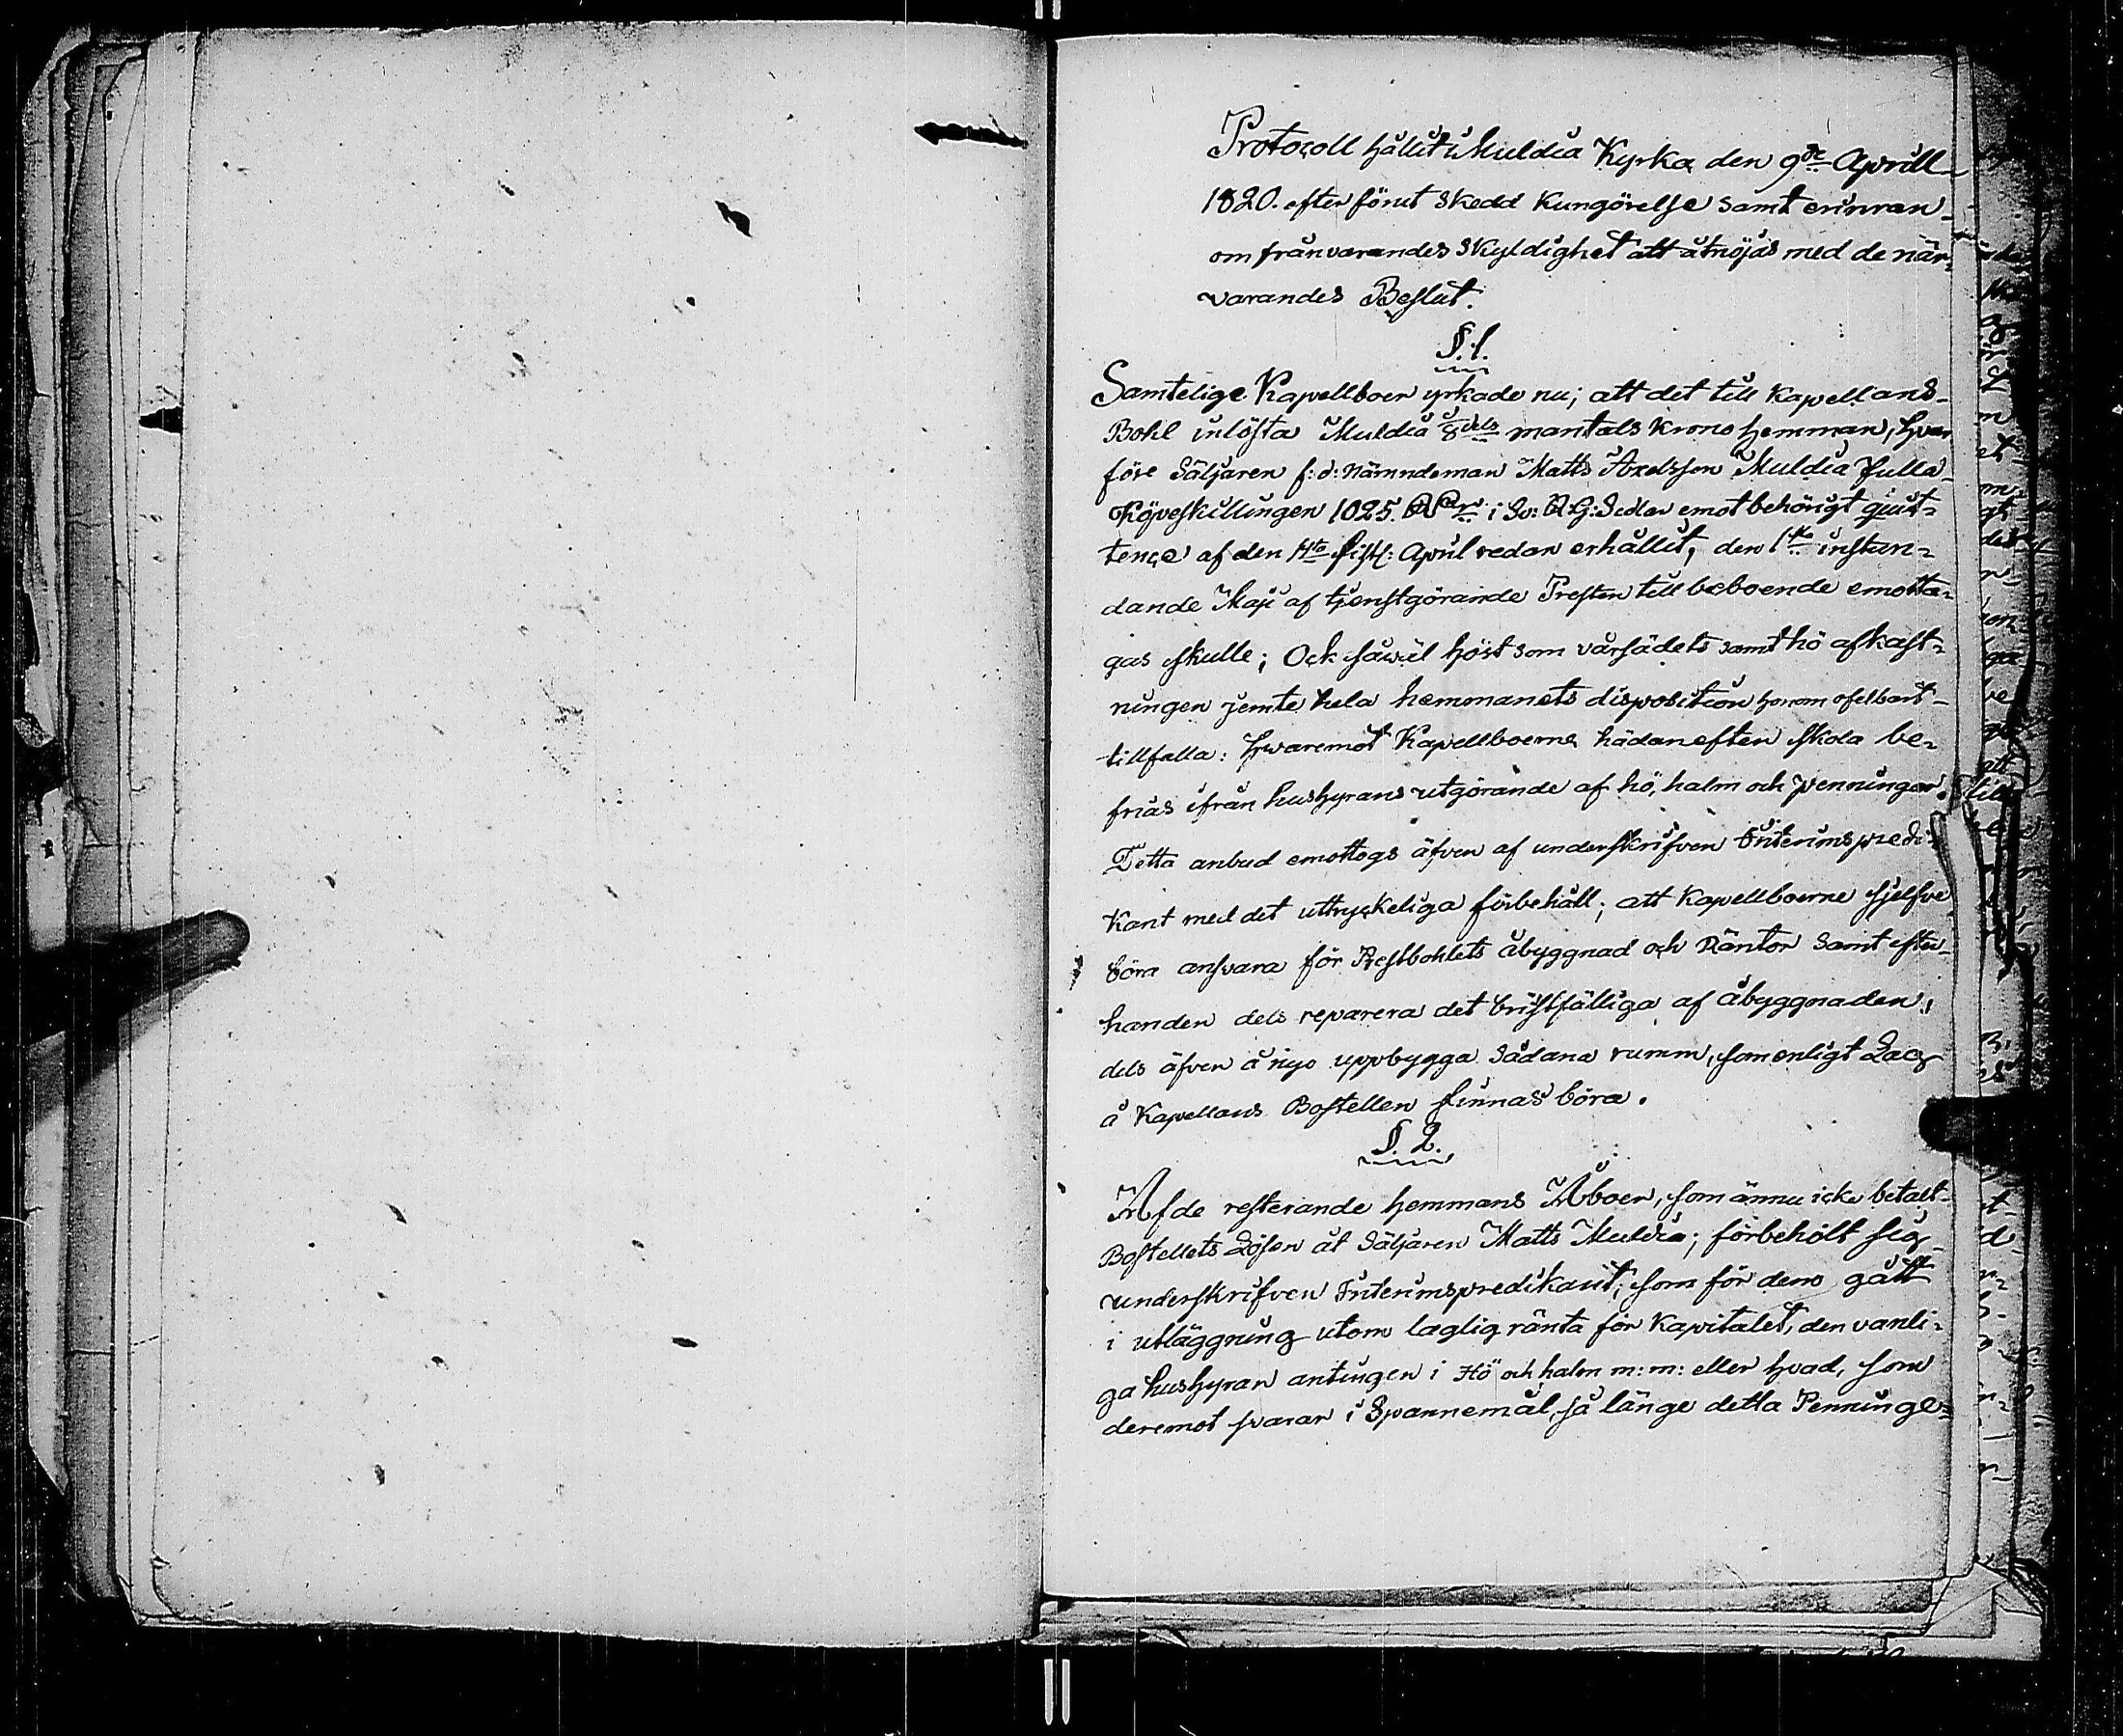 Protocoll hållit i Muldia Kyrka den 9de Aprill
1820. efter förut skedd Kungörelse samt erinran
om frånvarandes skyldighet att åtnöjas med de när-
varandes Beslut.
§. 1.
Samtelige Kapellboer yrkade nu; att det till Kapellans
Bohl inlösta Muldia 8dels mantals krono hemman, hvar
före Säljaren f: d: Nämndeman Matts Axelsson Muldia fulla
Köpeskillingen 1025. RDr i Sv: R: G: Sedlar emot behörigt quit-
tence af den sistl: April redan erhållit, den 1sta instun-
dande Maji af tjenstgörande Presten till beboende emotta-
gas skulle; Och såwäl höst som vårsädets samt hö afkast-
ningen jemte hela hemmanets disposition honom ofelbart
tillfalla: hwaremot Kapellboerne hädanefter skola be-
frias ifrån hushyrans utgörande af hö, halm och penningar.
Detta anbud emottogs äfven af underskrifven Interimspredi-
kant med det uttryckeliga förbehåll; att Kapellboerne sjelfve
böra ansvara för Prestbohlets åbyggnad och Räntor samt efter
handen dels reparera det bristfälliga af åbyggnaden,
dels äfven å nyo uppbygga sådana rumm, som enligt Lag
å Kapellans Bostellen finnas böra.
§. 2.
Af de resterande hemmans Åboer, som ännu icke betalt
Bostellets Lösen åt Säljaren Matts Muldia; förbehölt sig
underskrifven Interimspredikant, som för dem gått
i utläggning utom laglig ränta för Kapitalet, den vanli-
ga hushyran antingen i Hö och halm m: m: eller hvad, som
deremot svarar i Spannemål, så länge detta Penninge-